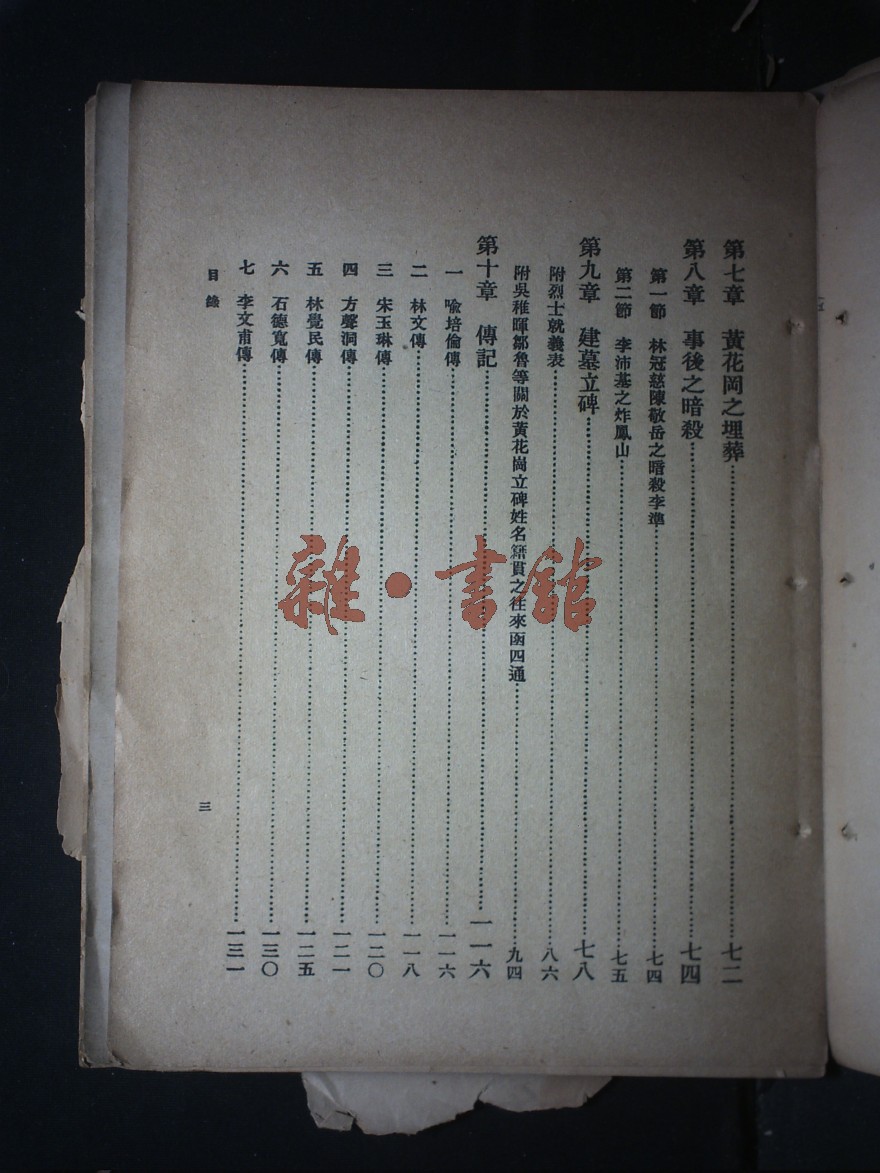 第七章　黃花岡之埋葬……七二
第八章　事後之暗殺……七四
第一節　林冠慈陳敬岳之暗殺李準……七四
第二節　李沛基之炸鳳山……七五
第九章　建墓立碑……七八
附烈士就義表……八六
附吳稚暉鄒魯等關於黃花崗立碑姓名籍貫之往來函四通……九四
第十章　傳記……一一六
一　喻培倫傳……一一六
二　林文傳……一一八
三　宋玉琳傳……一二〇
四　方聲洞傳……一二一
五　林覺民傳……一二五
六　石德寬傳……一三〇
七　李文甫傳……一三一
目錄
三
雜·書館